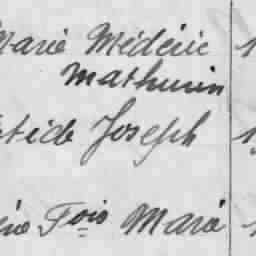 Marie Médéric
Mathurin
Joseph
Fois Marie